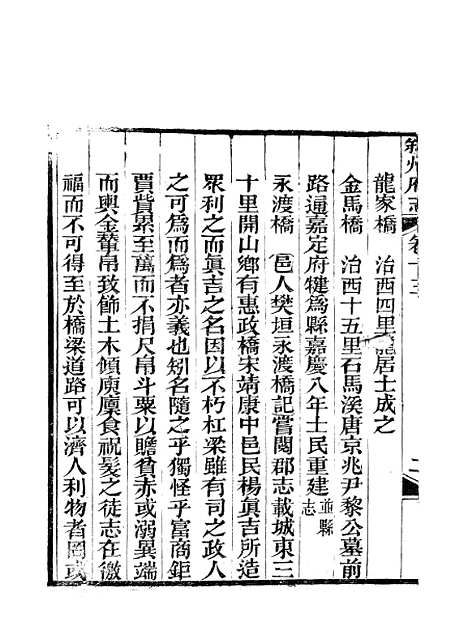 叙州府志 卷十三 二
龍家橋 治西四里龍居士成之
金馬橋 治西十五里石馬溪唐京兆尹黎公墓前
路通嘉定府犍爲縣嘉慶八年士民重建並縣志
永渡橋 邑人樊垣永渡橋記嘗閱郡志載城東三
十里開山鄉有惠政橋宋靖康中邑民楊眞吉所造
眾利之而眞吉之名因以不朽杠梁雖有司之政人
之可爲而爲者亦義也矧名隨之乎獨怪乎富商鉅
賈貲累至萬而不捐尺帛斗粟以贍貧赤或溺異端
而輿金輦帛致飾土木傾庾廩食祝髮之徒志在徼
福而不可得至於橋梁道路可以濟人利物者罔或